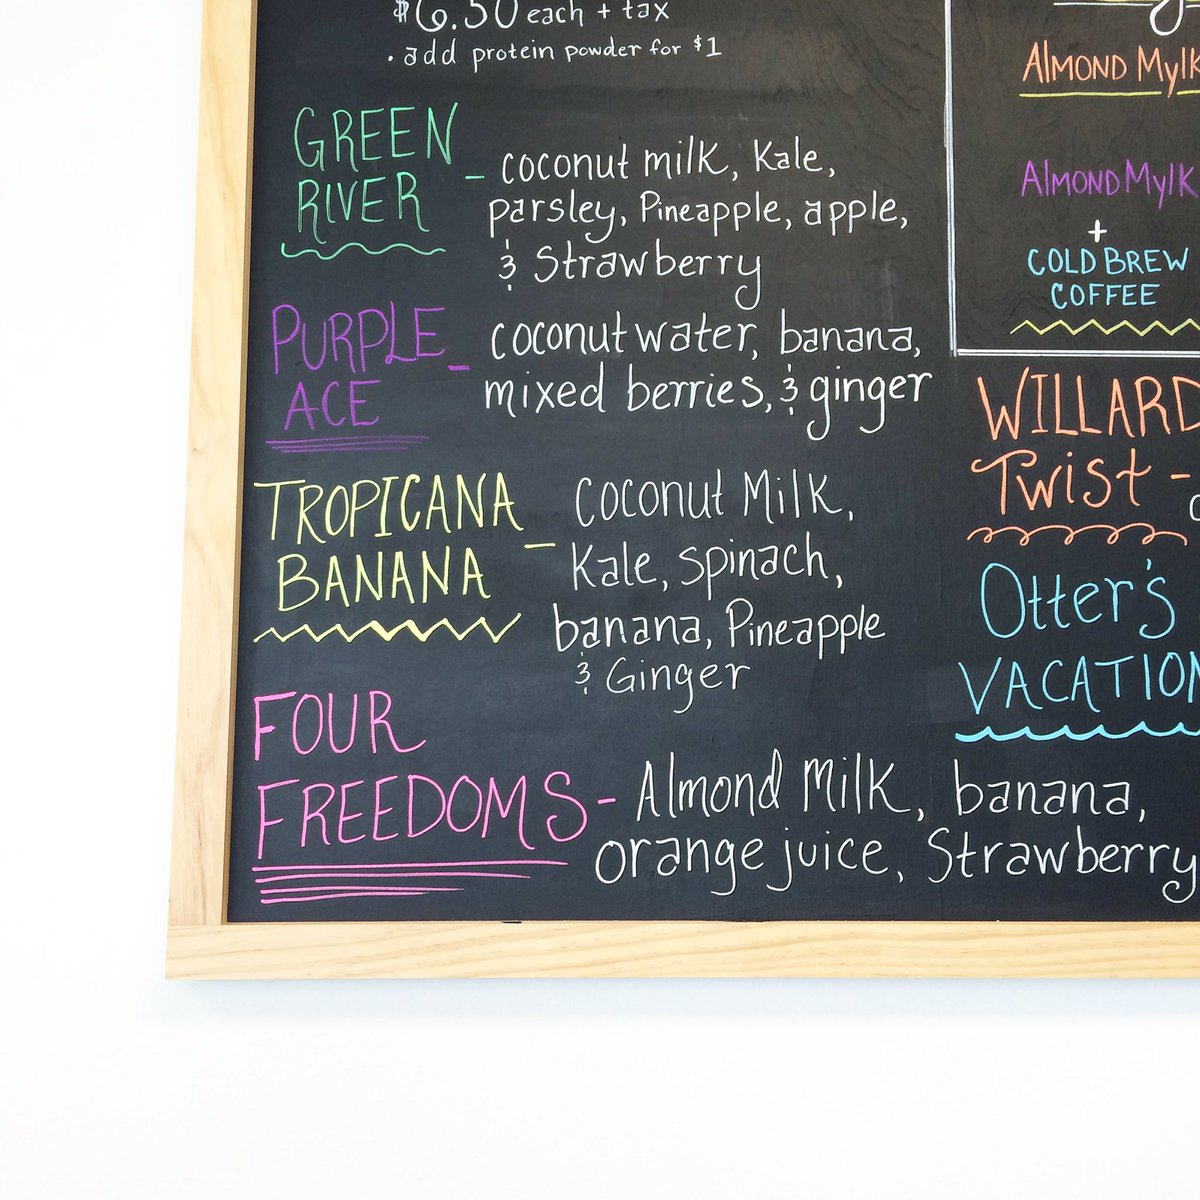 $6.50 each + tax
• add protein powder for $1
GREEN
RIVER - coconut milk, Kale,
parsley, Pineapple, apple,
& Strawberry
PURPLE
ACE - coconut water, banana,
mixed berries, & ginger
TROPICANA
BANANA - Coconut Milk,
Kale, spinach,
banana, Pineapple
& Ginger
FOUR
FREEDOMS - Almond Milk, banana,
orange juice, Strawberry
ALMOND Mylk
ALMOND Mylk
+
COLD BREW
COFFEE
WILLARD
Twist -
Otter's
VACATION